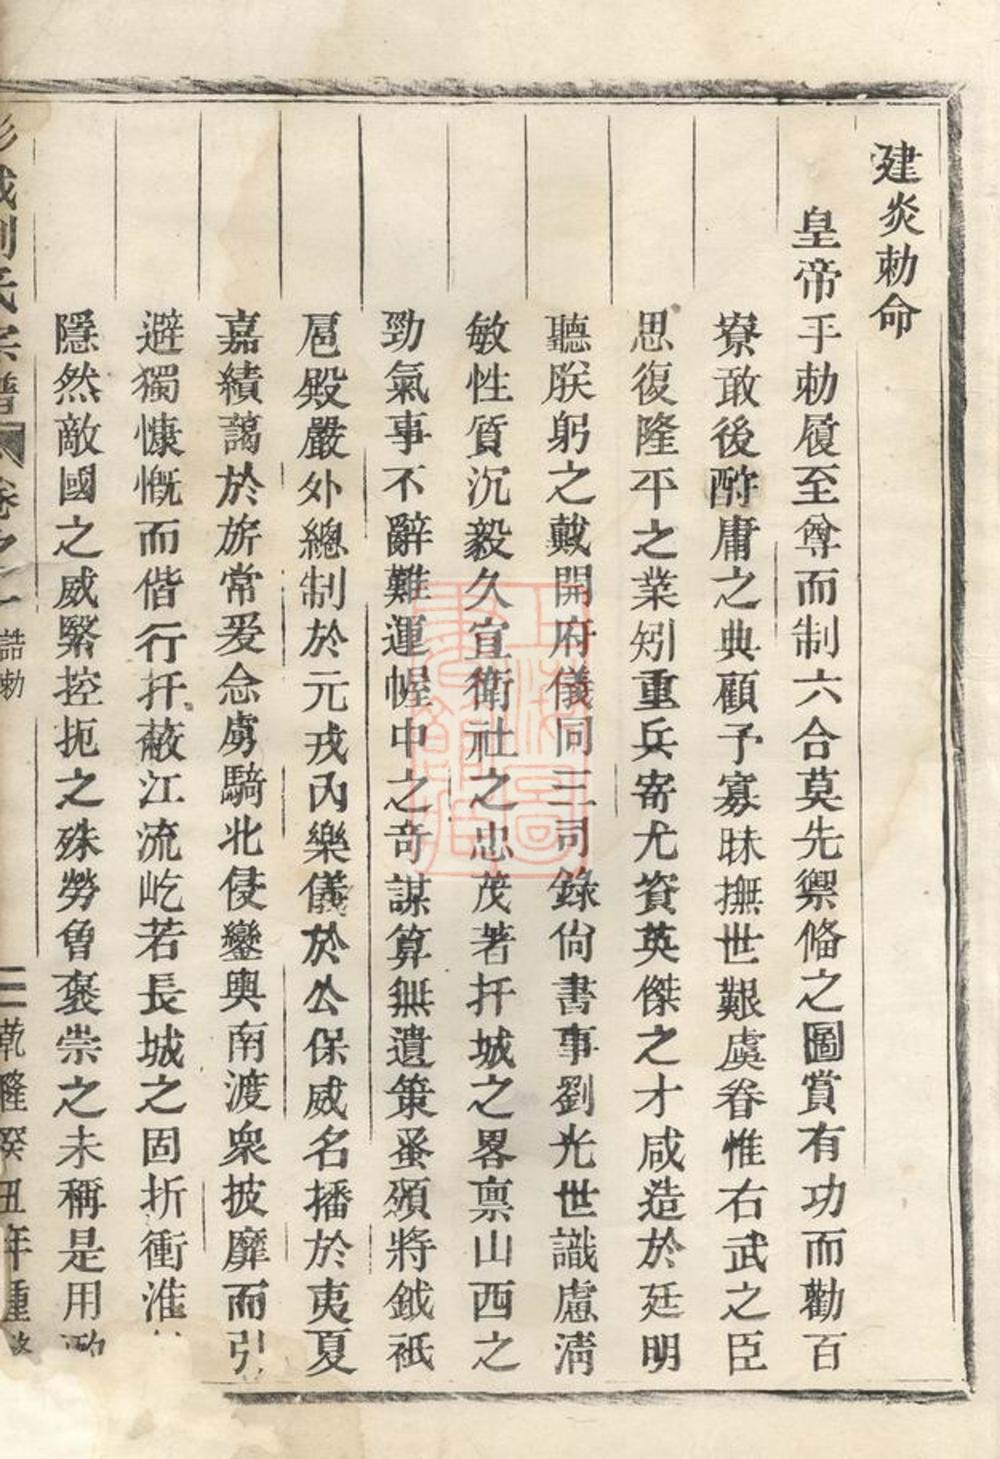 建炎勅命
皇帝手勅履至尊而制六合莫先禦偹之圖賞有功而勸百
寮敢後酧庸之典顧予寡昧撫世艱虞眷惟右武之臣
思復隆平之業矧重兵寄尤資英傑之才咸造於廷明
聽朕躬之戴開府儀同三司錄尙書事劉光世識慮淸
敏性質沉毅久宣衛社之忠茂著扞城之畧禀山西之
勁氣事不辭難運幄中之奇謀算無遺策蚤頒將鉞祇
扈殿嚴外總制於元戎內樂儀於公保威名播於夷夏
嘉績藹於旂常爰念虜騎北侵鑾輿南渡衆披靡而引
避獨慷慨而偕行扞蔽江流屹若長城之固折衝淮
隱然敵國之威緊控扼之殊勞魯褒崇之未稱是用
彭城劉氏宗譜 卷之一 誥勅 二 乾隆癸丑年重修